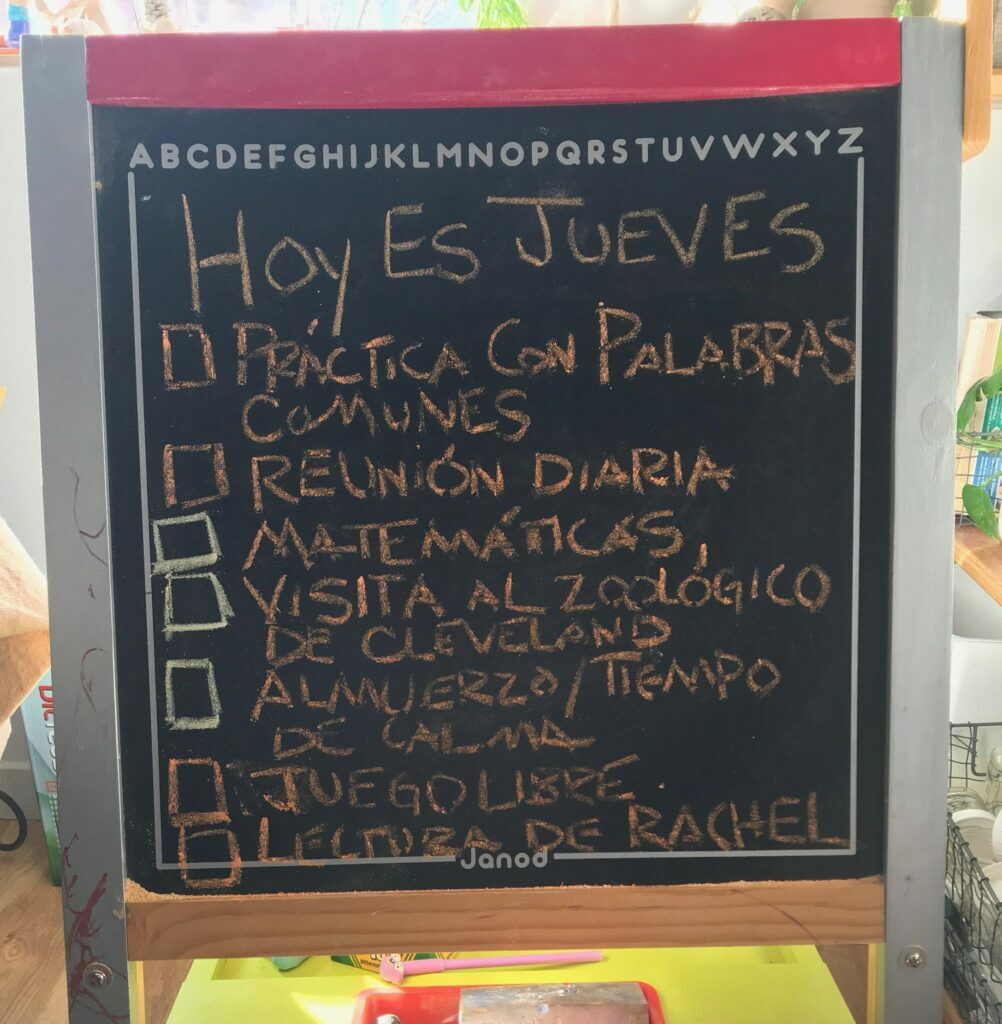 ABCDEFGHIJKLMNOPQRSTUVWXYZ
HOY ES JUEVES
PRÁCTICA CON PALABRAS
COMUNES
REUNIÓN DIARIA
MATEMÁTICAS
VISITA AL ZOOLÓGICO
DE CLEVELAND
ALMUERZO/TIEMPO
DE CALMA
JUEGO LIBRE
LECTURA DE RACHEL
Janod